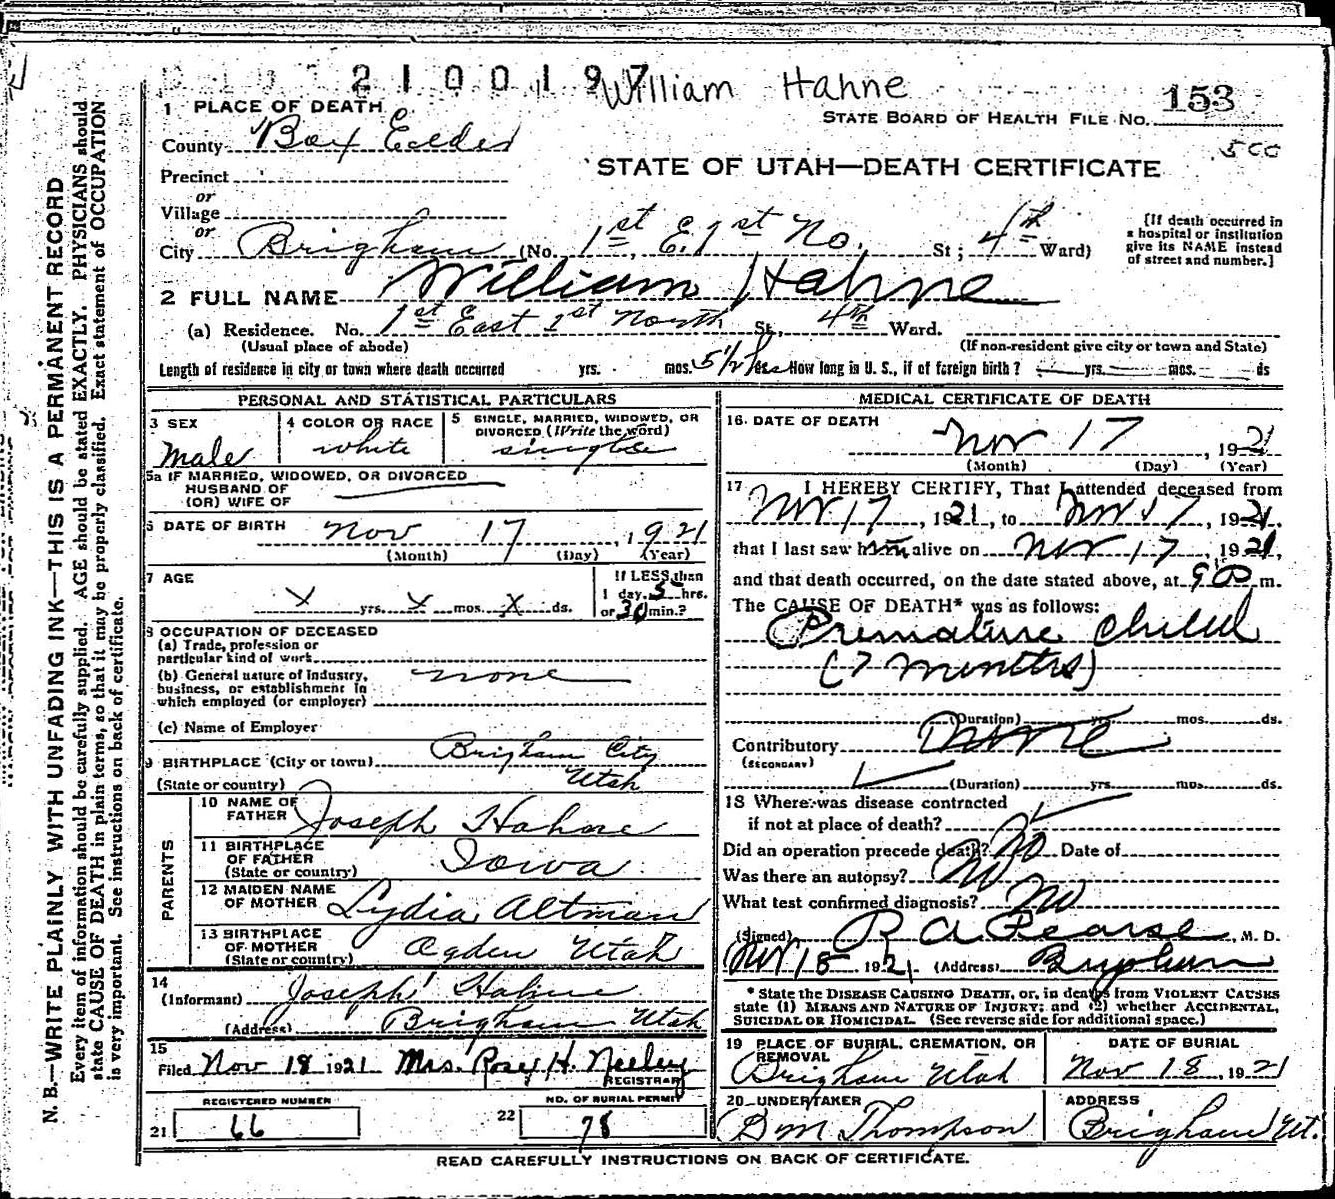 2100197 William Hahne
153
STATE BOARD OF HEALTH FILE NO.
500
STATE OF UTAH—DEATH CERTIFICATE
1 PLACE OF DEATH
County Box Elder
Precinct
or
Village
or
City Brigham (No. 1st E. 1st No. St; 4th Ward)
[If death occurred in a hospital or institution give its NAME instead of street and number.]
2 FULL NAME William Hahne
(a) Residence. No. 1st East 1st North St., 4th Ward.
(Usual place of abode) (If non-resident give city or town and State)
Length of residence in city or town where death occurred yrs. mos. 5 1/2 hrs How long in U. S., if of foreign birth? yrs. mos. ds
PERSONAL AND STATISTICAL PARTICULARS
3 SEX
Male
4 COLOR OR RACE
white
5 SINGLE, MARRIED, WIDOWED, OR DIVORCED (Write the word)
single
5a IF MARRIED, WIDOWED, OR DIVORCED
HUSBAND OF
(OR) WIFE OF
6 DATE OF BIRTH Nov 17, 1921
(Month) (Day) (Year)
7 AGE
X yrs. X mos. X ds.
If LESS than
1 day, 5 hrs.
or 30 min.?
8 OCCUPATION OF DECEASED
(a) Trade, profession or
particular kind of work
(b) General nature of industry,
business, or establishment in
which employed (or employer)
none
(c) Name of Employer
9 BIRTHPLACE (City or town) Brigham City
(State or country) Utah
PARENTS
10 NAME OF FATHER Joseph Hahne
11 BIRTHPLACE OF FATHER (State or country) Iowa
12 MAIDEN NAME OF MOTHER Lydia Altman
13 BIRTHPLACE OF MOTHER (State or country) Ogden Utah
14
(Informant) Joseph Hahne
(Address) Brigham Utah
15
Filed Nov 18 1921 Mrs. Rosey H. Neeley
REGISTRAR
REGISTERED NUMBER
21 66
NO. OF BURIAL PERMIT
22 78
MEDICAL CERTIFICATE OF DEATH
16. DATE OF DEATH
Nov 17, 1921
(Month) (Day) (Year)
17 I HEREBY CERTIFY, That I attended deceased from
Nov 17, 1921, to Nov 17, 1921,
that I last saw him alive on Nov 17, 1921,
and that death occurred, on the date stated above, at 9 P. m.
The CAUSE OF DEATH* was as follows:
Premature child
(7 months)
(Duration) yrs. mos. ds.
Contributory None
(SECONDARY)
(Duration) yrs. mos. ds.
18 Where was disease contracted
if not at place of death?
Did an operation precede death? No Date of
Was there an autopsy? No
What test confirmed diagnosis? No
(Signed) R A Pearse, M. D.
Nov 18 1921 (Address) Brigham
* State the DISEASE CAUSING DEATH, or, in deaths from VIOLENT CAUSES
state (1) MEANS AND NATURE OF INJURY; and (2) whether ACCIDENTAL,
SUICIDAL OR HOMICIDAL. (See reverse side for additional space.)
19 PLACE OF BURIAL, CREMATION, OR REMOVAL
Brigham Utah
DATE OF BURIAL
Nov 18, 1921
20 UNDERTAKER
B M Thompson
ADDRESS
Brigham Ut.
READ CAREFULLY INSTRUCTIONS ON BACK OF CERTIFICATE.
N. B.—WRITE PLAINLY WITH UNFADING INK—THIS IS A PERMANENT RECORD
Every item of information should be carefully supplied. AGE should be stated EXACTLY. PHYSICIANS should
state CAUSE OF DEATH in plain terms, so that it may be properly classified. Exact statement of OCCUPATION
is very important. See instructions on back of certificate.